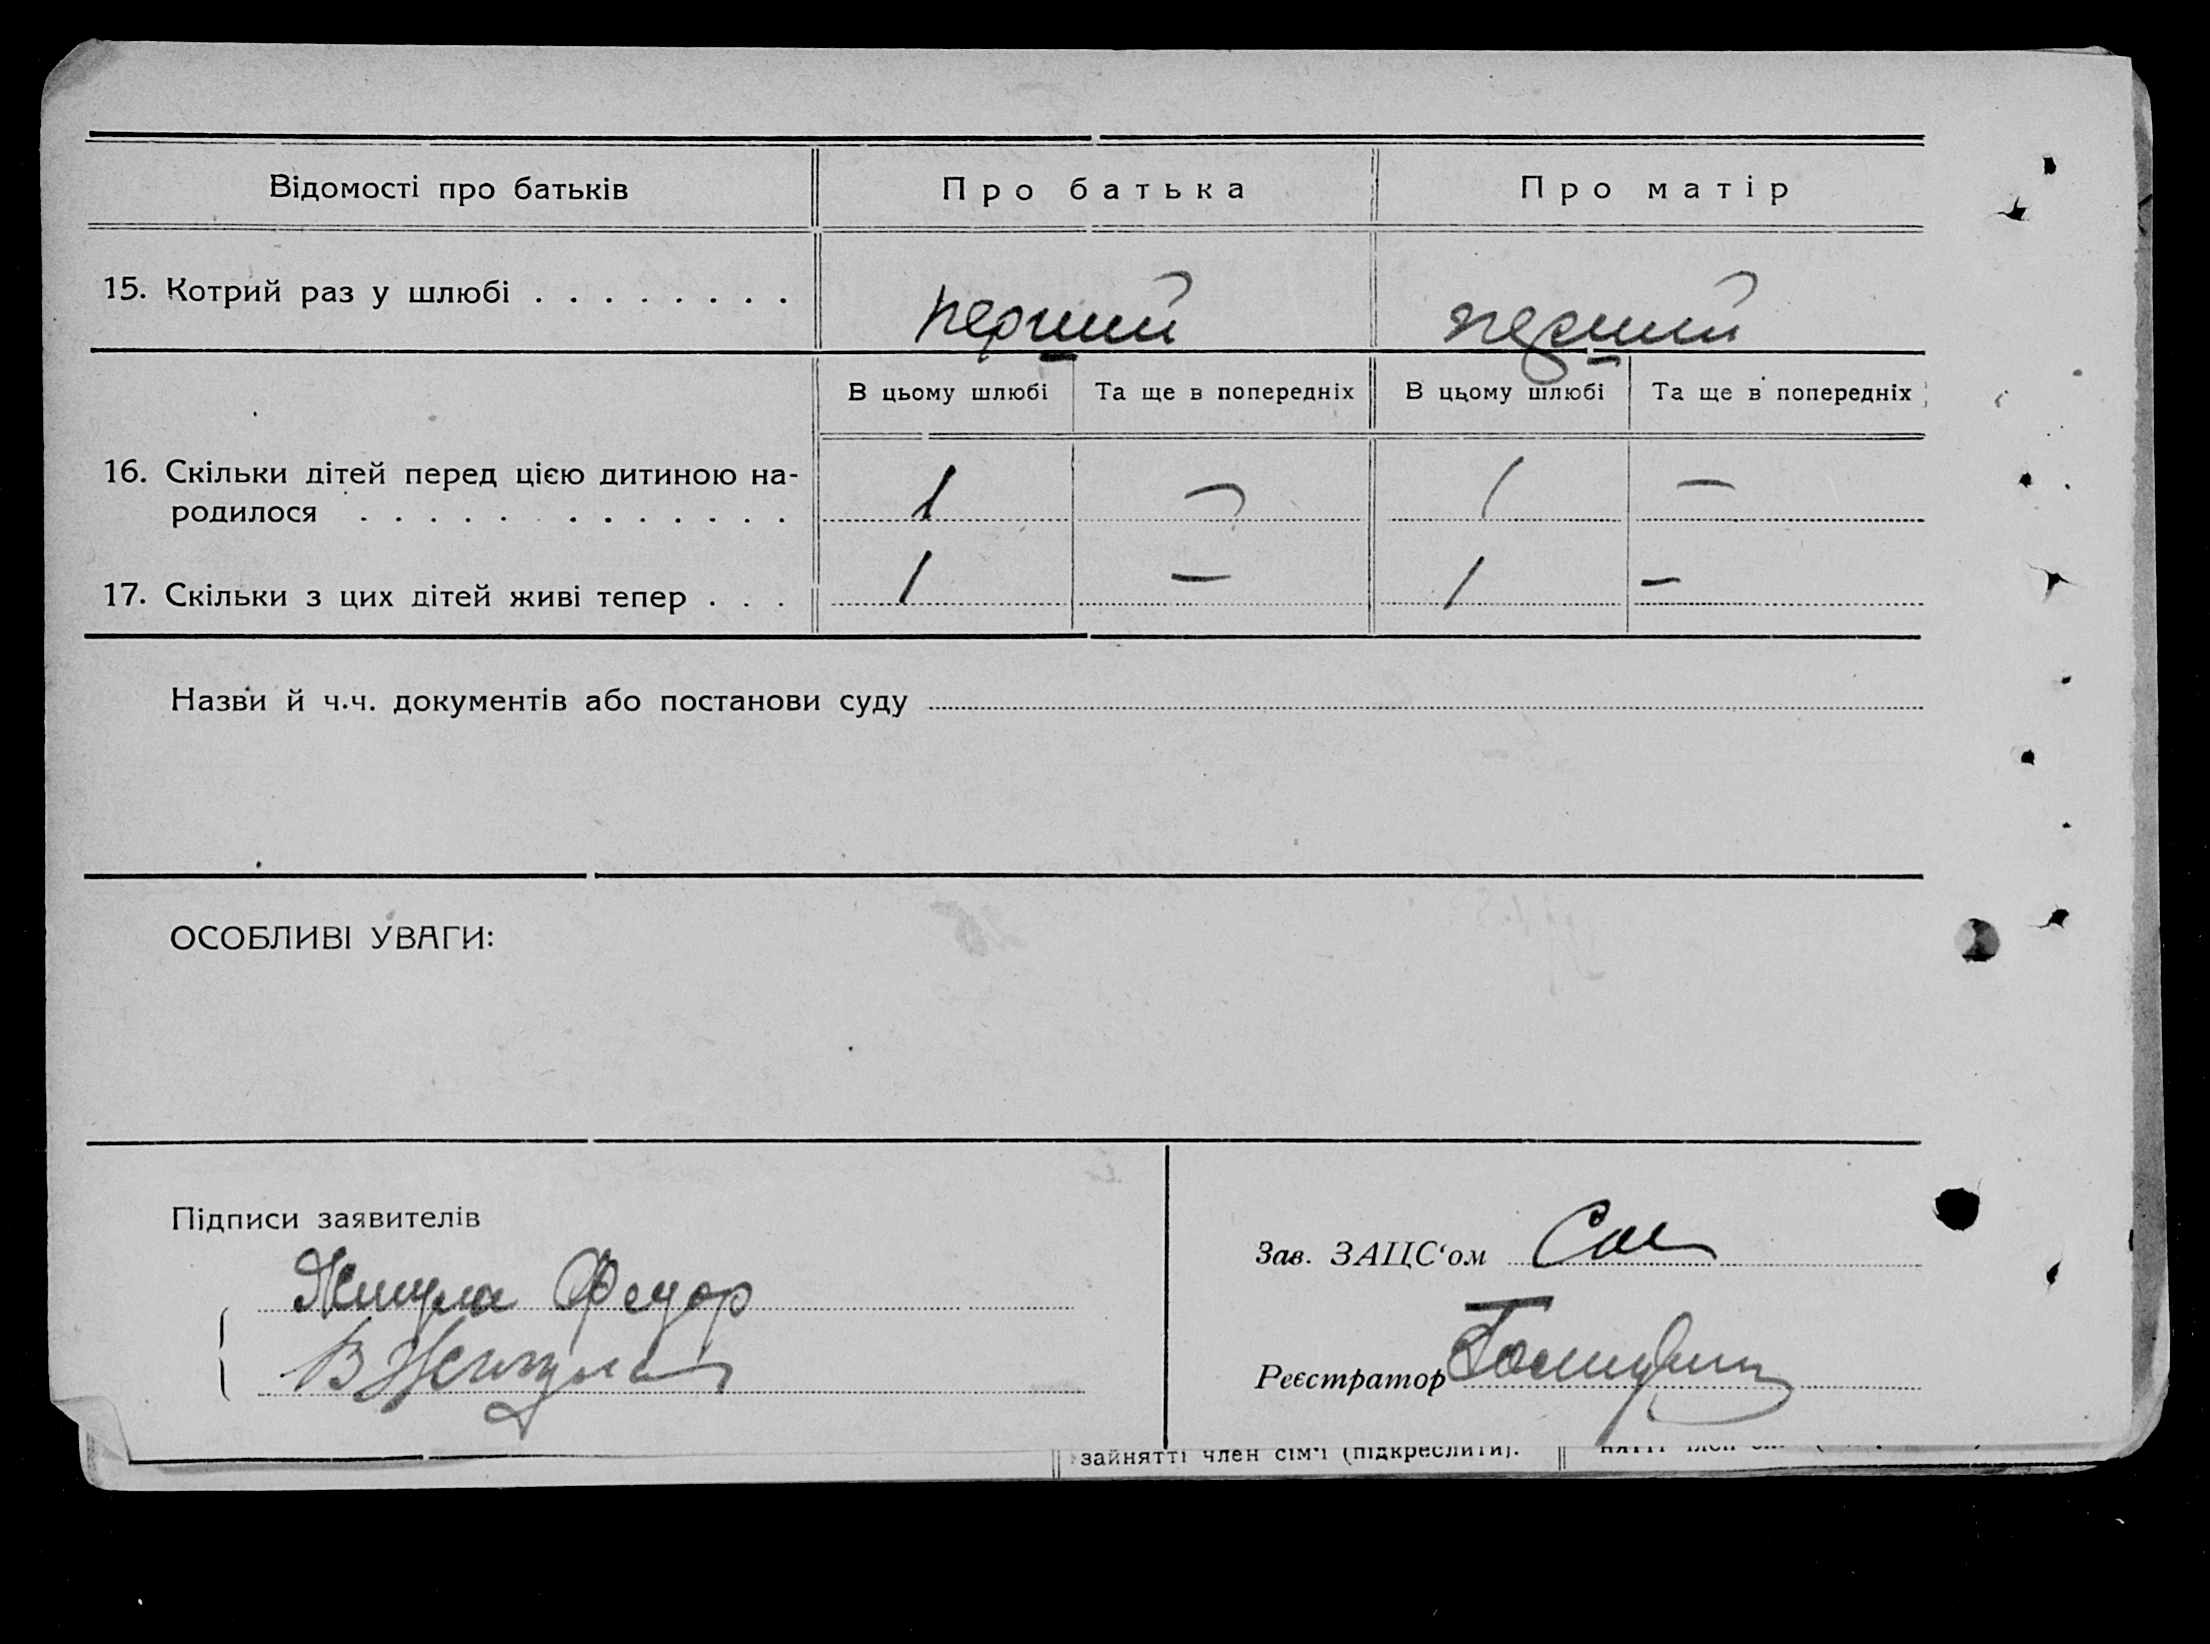 Відомості про батьків Про батька Про матір
15. Котрий раз у шлюбі . . . . . . . . перший перший
В цьому шлюбі Та ще в попередніх В цьому шлюбі Та ще в попередніх
16. Скільки дітей перед цією дитиною на-
родилося . . . . . . . . . . . . 1 — 1 —
17. Скільки з цих дітей живі тепер . . . 1 — 1 —
Назви й ч.ч. документів або постанови суду
ОСОБЛИВІ УВАГИ:
Підписи заявителів
Федор
Зав. ЗАЦС‘ом
Реєстратор
зайнятті член сім'ї (підкреслити).